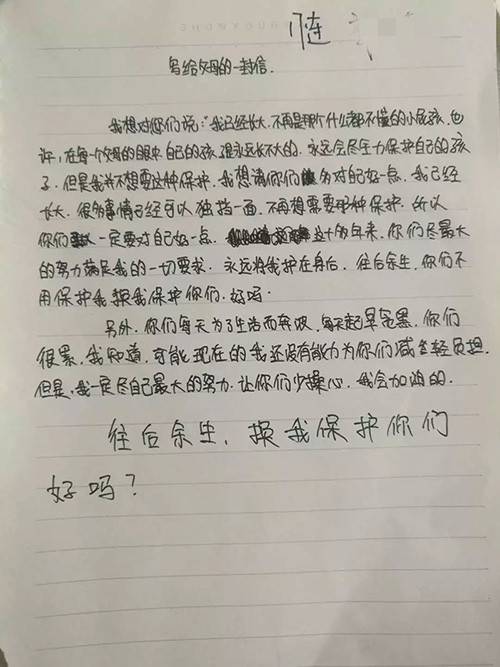 1连
写给父母的一封信.
我想对你们说:“我已经长大,不再是那个什么都不懂的小屁孩,也
许,在每个父母的眼中,自己的孩子是永远长不大的.永远会尽全力保护自己的孩
子.但是我并不想要这种保护.我想请你们 多对自己好点.我已经
长大.很多事情已经可以独挡一面,不再想需要那种保护.所以
你们 一定要对自己好一点. 这十多年来,你们尽最大
的努力满足我的一切要求.永远将我护在身后.往后余生.你们不
用保护我.换我保护你们.好吗.
另外,你们每天为了生活而奔波,每天起早贪黑.你们
很累,我知道,可能现在的我还没有能力为你们减轻负担.
但是,我一定尽自己最大的努力.让你们少操心.我会加油的.
往后余生,换我保护你们
好吗?